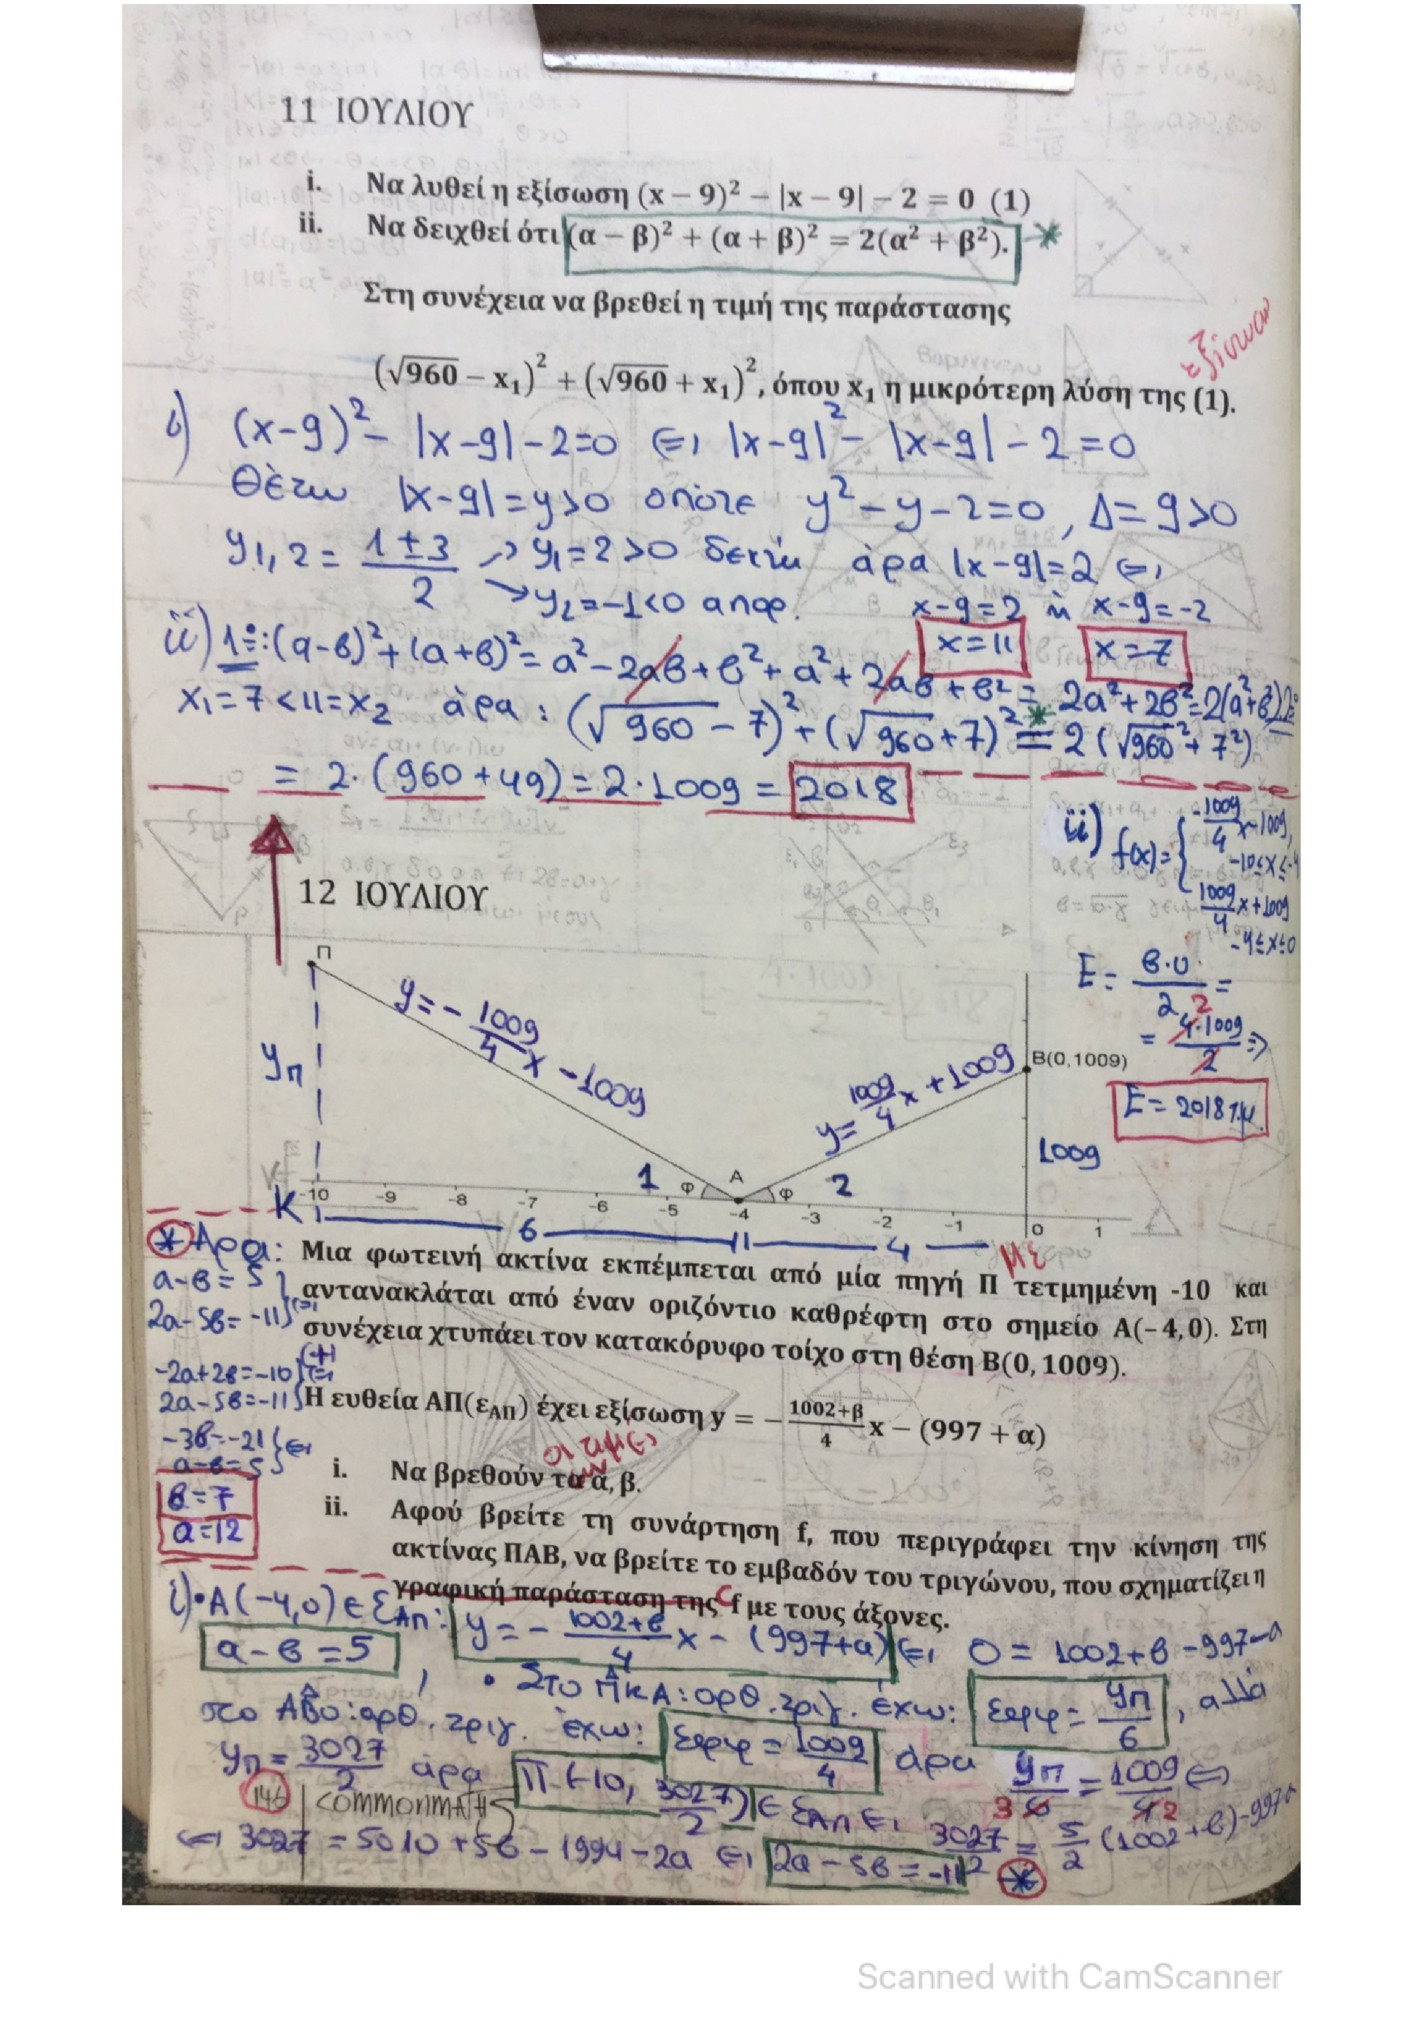 11 ΙΟΥΛΙΟΥ
i. Να λυθεί η εξίσωση (x – 9)² – |x – 9| – 2 = 0 (1)
ii. Να δειχθεί ότι (α – β)² + (α + β)² = 2(α² + β²). *
Στη συνέχεια να βρεθεί η τιμή της παράστασης
εξίσωση
(√960 – x₁)² + (√960 + x₁)², όπου x₁ η μικρότερη λύση της (1).
i) (x-9)² - |x-9| - 2=0 ⇔ |x-9|² - |x-9| - 2 = 0
Θέτω |x-9|=y>0 οπότε y²-y-2=0, Δ=9>0
y1,2 = (1±3)/2 → y₁=2>0 δεκτή άρα |x-9|=2 ⇔
→ y₂=-1<0 απορ. x-9=2 ή x-9=-2
x=11 x=7
ii) 1º: (α-β)²+(α+β)²= α²-2αβ+β²+α²+2αβ+β² = 2α²+2β²=2(α²+β²) 2º
x₁=7<11=x₂ άρα: (√960-7)²+(√960+7)² =* 2(√960²+7²)
= 2·(960+49)=2·1009= 2018
12 ΙΟΥΛΙΟΥ
ii) f(x)= { -1009/4 x-1009, -10≤x≤-4
1009/4 x+1009 -4≤x≤0
Π
y = -1009/4 x -1009
y= 1009/4 x +1009
B(0,1009)
E = β·υ/2 =
= 4·1009/2 ⇒
E= 2018 τ.μ.
yπ
1009
1 φ A φ 2
K -10 -9 -8 -7 -6 -5 -4 -3 -2 -1 0 1
6 4
* Άρα:
α-β=5
2α-5β=-11
-2α+2β=-10 (+)
2α-5β=-11
-3β=-21
α-β=5
β=7
α=12
με
Μια φωτεινή ακτίνα εκπέμπεται από μία πηγή Π τετμημένη -10 και
αντανακλάται από έναν οριζόντιο καθρέφτη στο σημείο A(–4, 0). Στη
συνέχεια χτυπάει τον κατακόρυφο τοίχο στη θέση B(0, 1009).
Η ευθεία ΑΠ(ε_ΑΠ) έχει εξίσωση y = –(1002+β)/4 x – (997 + α)
οι τιμές
i. Να βρεθούν τα α, β.
ii. Αφού βρείτε τη συνάρτηση f, που περιγράφει την κίνηση της
ακτίνας ΠΑΒ, να βρείτε το εμβαδόν του τριγώνου, που σχηματίζει η
γραφική παράσταση της C f με τους άξονες.
i)• A(-4,0) ∈ ε_ΑΠ: y=-(1002+β)/4 x-(997+α) ⇔ 0=1002+β-997-α
α-β=5, • Στο ΠΚΑ: ορθ. τριγ. έχω: εφφ= yπ/6, αλλά
στο ΑΒΟ: ορθ. τριγ. έχω: εφφ = 1009/4 άρα yπ/6 = 1009/4 ⇔
yπ = 3027/2 άρα Π(-10, 3027/2) ∈ ε_ΑΠ ⇔ 3027/2 = 5/2 (1002+β)-997-α
146 | COMMONMATHS
⇔ 3027 = 5010+5β-1994-2α ⇔ 2α-5β=-11 *
Scanned with CamScanner